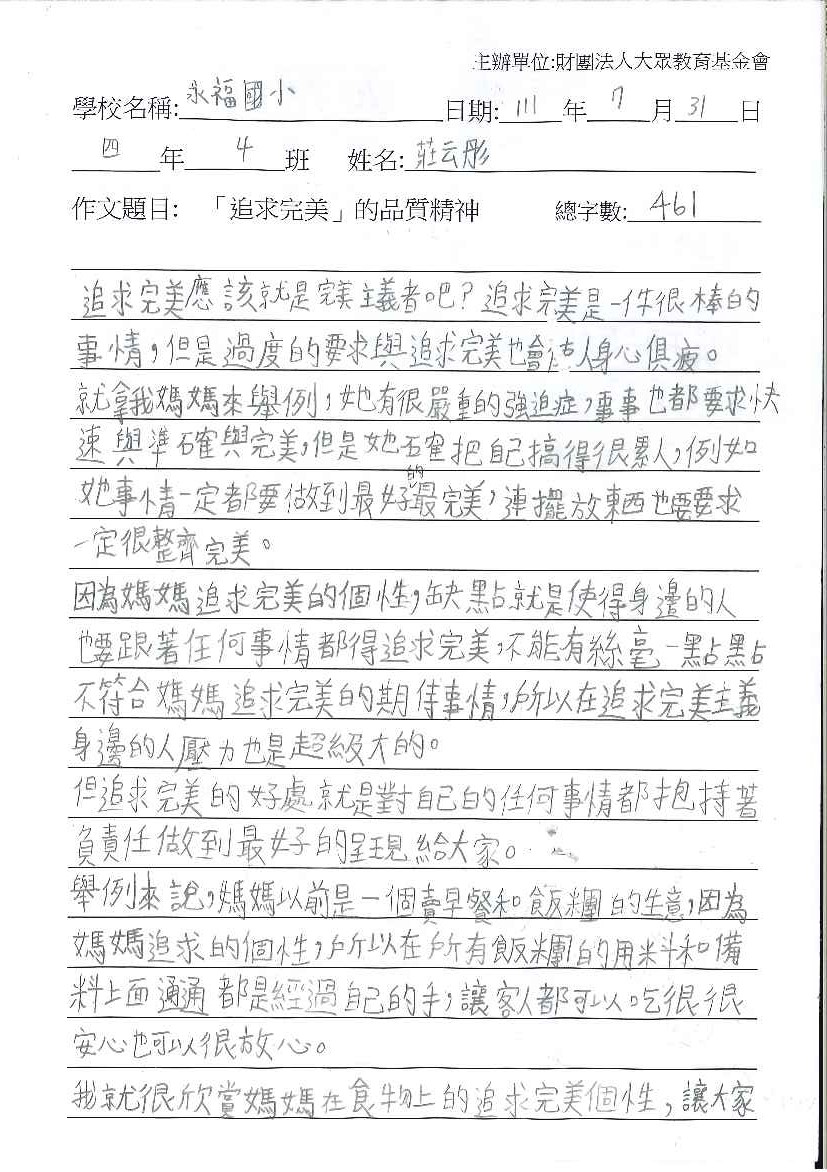 主辦單位:財團法人大眾教育基金會
學校名稱:永福國小 日期:111年7月31日
四年4班 姓名:莊云彤
作文題目: 「追求完美」的品質精神 總字數:461
追求完美應該就是完美主義者吧?追求完美是一件很棒的
事情,但是過度的要求與追求完美也會人身心俱疲。
就拿我媽媽來舉例,她有很嚴重的強迫症,事事也都要求快
速與準確與完美,但是她確把自己搞得很累人,例如
她事情一定都要做到最好的最完美,連擺放東西也要要求
一定很整齊完美。
因為媽媽追求完美的個性,缺點就是使得身邊的人
也要跟著任何事情都得追求完美,不能有絲毫一點點
不符合媽媽追求完美的期待事情,所以在追求完美主義
身邊的人壓力也是超級大的。
但追求完美的好處就是對自己的任何事情都抱持著
負責任做到最好的呈現給大家。
舉例來說,媽媽以前是一個賣早餐和飯糰的生意,因為
媽媽追求的個性,所以在所有飯糰的用料和備
料上面通通都是經過自己的手,讓客人都可以吃很很
安心也可以很放心。
我就很欣賞媽媽在食物上的追求完美個性,讓大家